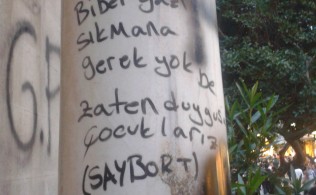 Biber gazı
sıkmana
gerek yok be
zaten duygusal
çocuklarız
(SAYBORT)
G.P